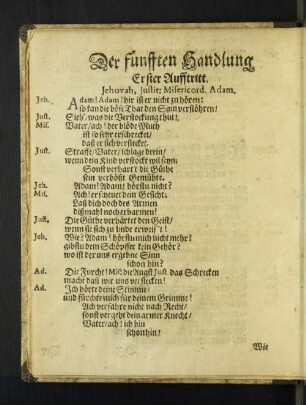 Der fünfften Handlung
Erster Aufftritt.
Jehovah, Justit, Misericord. Adam,
Jeh. Adam! Adam! hir ist er nicht zu hören:
so kan die böse That den Sinn verstöhren!
Just. Sieh', was die Verstockung thut!,
Mis. Vater/ ach! der blöde Muth
ist so sehr erschrecket/
daß er sich verstecket.
Just. Straffe/ Vater/ schlage drein/
wenn dein Kind verstockt wil seyn;
Sonst verhart't die Güthe
sein verboßt Gemühte.
Jeh. Adam! Adam! hörstu nicht?
Mis. Ach! er scheuet dein Gesicht.
Laß dich doch des Armen
dißmahl noch erbarmen!
Just. Die Güthe verhärtet den Geist/
wenn sie sich zu linde erweis't!
Jeh. Wie? Adam! hörstu mich nicht mehr?
gibstu dem Schöpffer kein Gehör?
wo ist der uns ergebne Sinn
schon hin?
Ad. Die Furcht! Mis: die Angst Just. das Schrecken
macht daß wir uns verstecken!
Ad. Ich hörte deine Stimme/
und fürchte mich für deinem Grimme!
Ach verfahre nicht nach Recht/
sonst vergeht dein armer Knecht/
Vater/ ach! ich bin
schon hin!
Wie